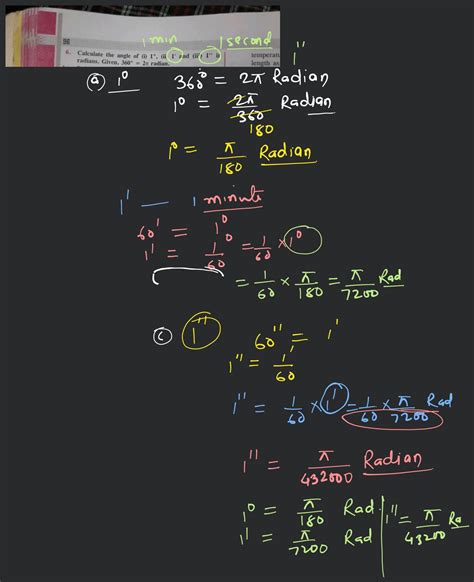 96
1 min 1 second
6. Calculate the angle of (i) 1°, (ii) 1' and (iii) 1" in
radians. Given, 360° = 2π radian.
temperature
length as
1"
(a) 1° 360° = 2π Radian
1° = 2π/360 Radian
180
1° = π/180 Radian
1' — 1 minute
60' = 1°
1' = 1/60° = 1/60 × 1°
= 1/60 × π/180 = π/7200 Rad
(c) 1"
60" = 1'
1" = 1/60'
1" = 1/60 × 1' = 1/60 × π/7200 Rad
1" = π/432000 Radian
1° = π/180 Rad 1" = π/43200 Ra
1' = π/7200 Rad